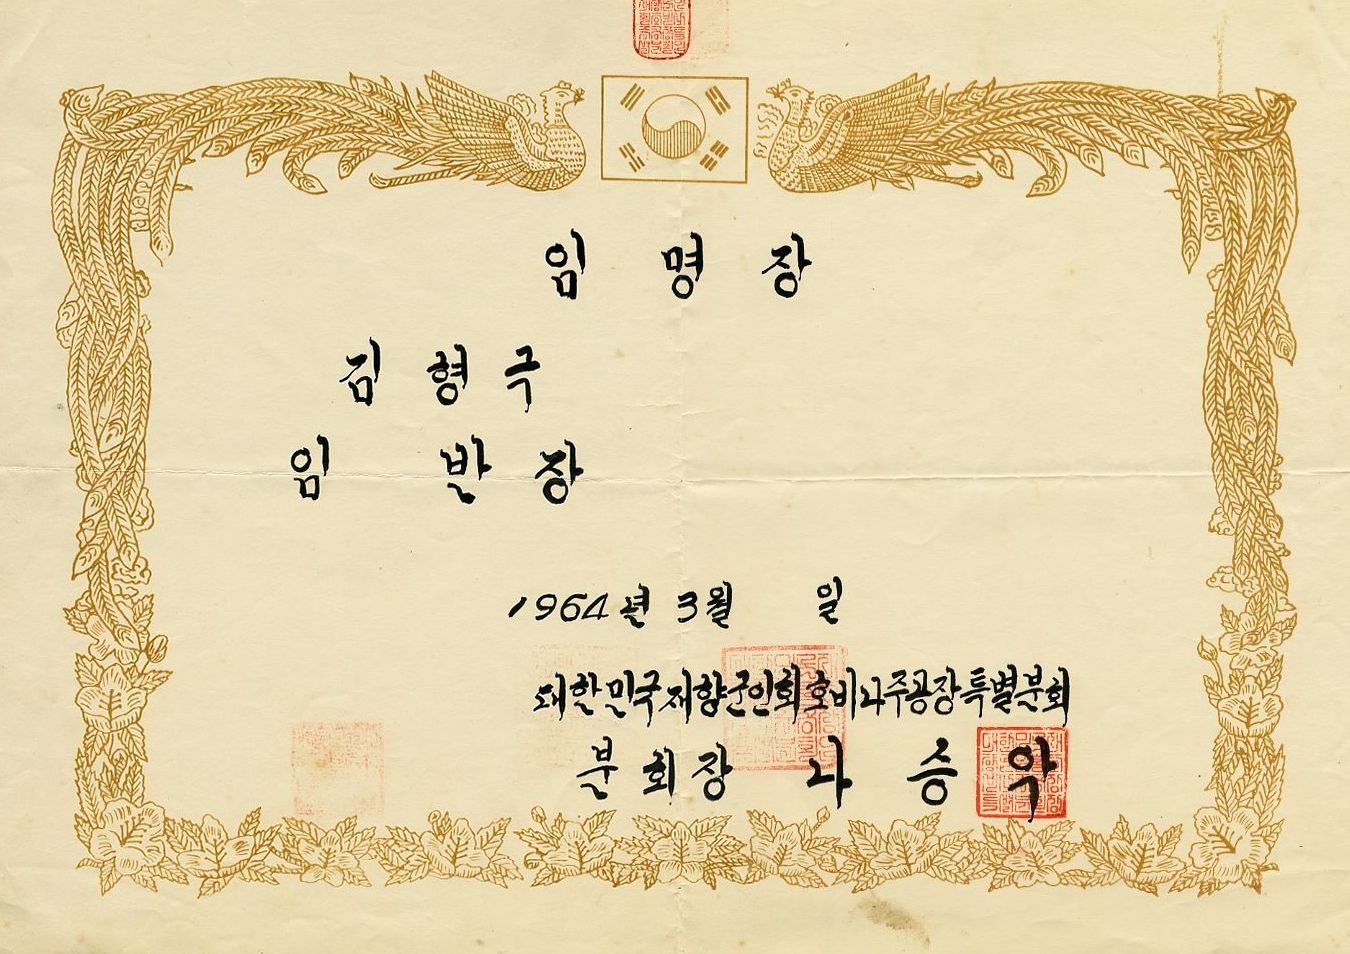 임 명 장
김 형 국
임 반 장
1964년 3월 일
대한민국재향군인회호비나주공장특별분회
분회장 나 승 악